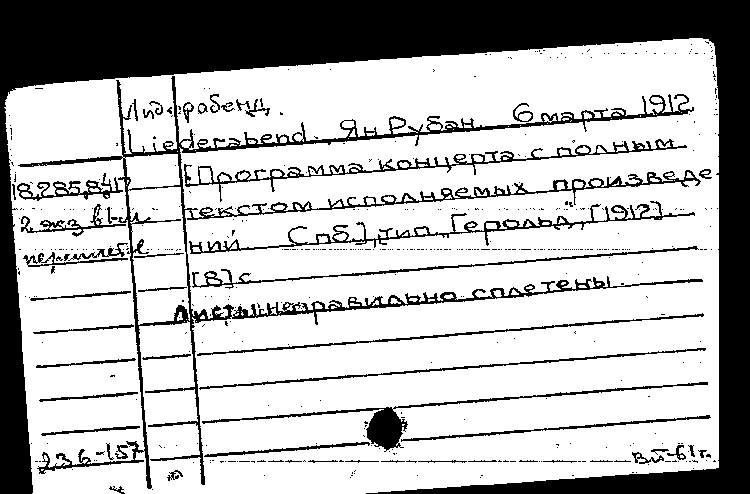 Лидерабенд.
Liederabend. Ян Рубан. 6 марта 1912
18.285.8.417 [Программа концерта с полным
2 экз вып текстом исполняемых произведе-
ний Спб.], тип. "Герольд", [1912].
[8] с
Листы неправильно сплетены.
236-157